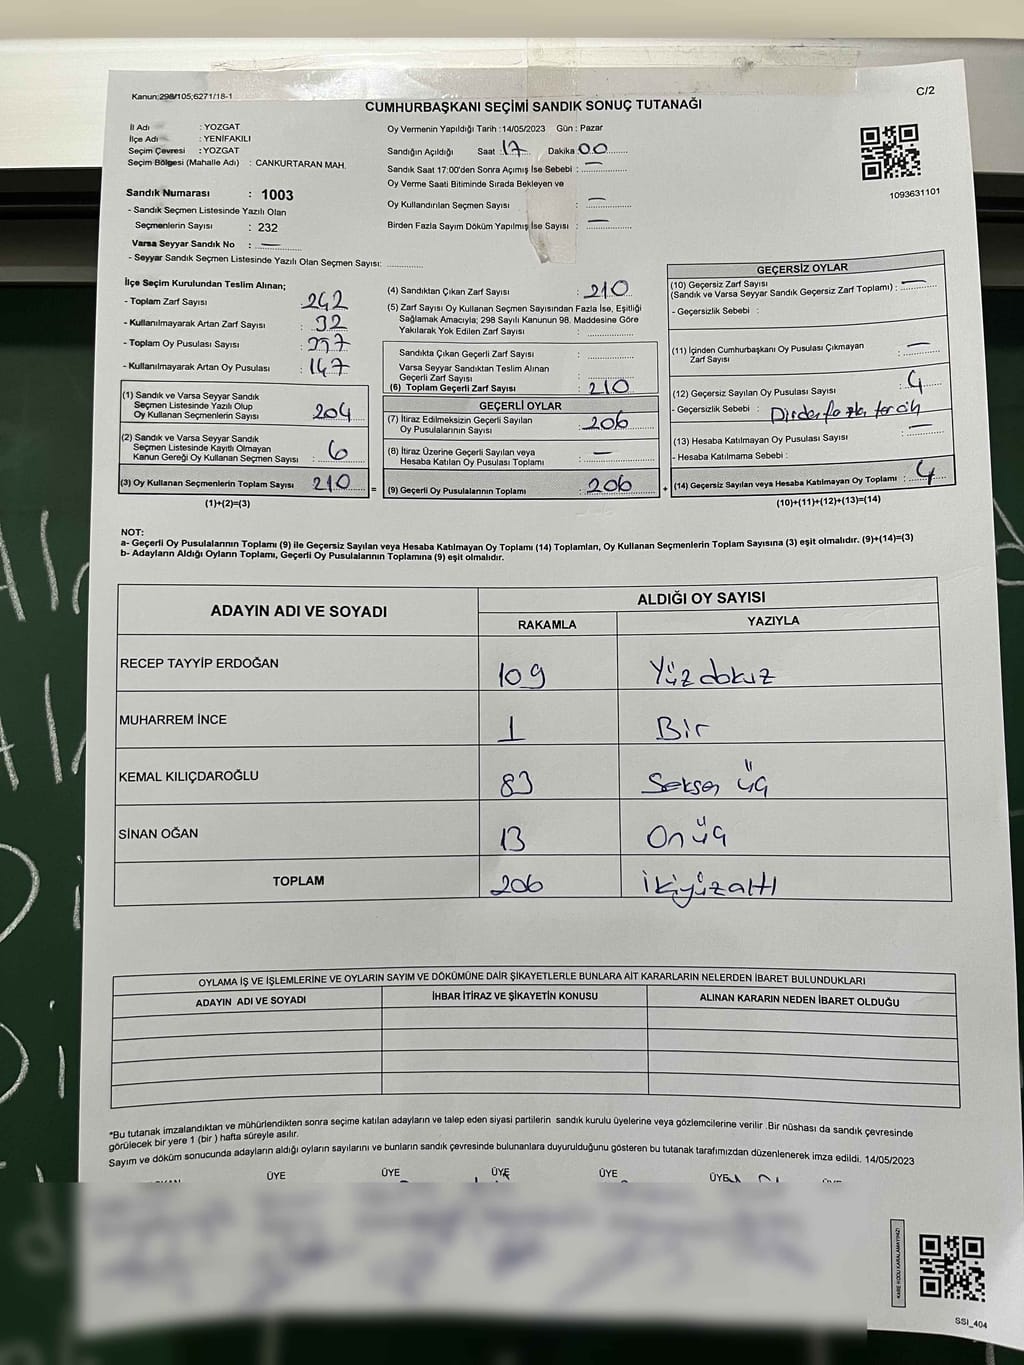 Kanun;298/105,6271/18-1
C/2
CUMHURBAŞKANI SEÇİMİ SANDIK SONUÇ TUTANAĞI
İl Adı : YOZGAT
İlçe Adı : YENİFAKILI
Seçim Çevresi : YOZGAT
Seçim Bölgesi (Mahalle Adı) : CANKURTARAN MAH.
Sandık Numarası : 1003
- Sandık Seçmen Listesinde Yazılı Olan
Seçmenlerin Sayısı : 232
Varsa Seyyar Sandık No : —
- Seyyar Sandık Seçmen Listesinde Yazılı Olan Seçmen Sayısı: ............
Oy Vermenin Yapıldığı Tarih : 14/05/2023 Gün : Pazar
Sandığın Açıldığı Saat : 17 Dakika 00
Sandık Saat 17:00'den Sonra Açımış İse Sebebi : —
Oy Verme Saati Bitiminde Sırada Bekleyen ve
Oy Kullandırılan Seçmen Sayısı : —
Birden Fazla Sayım Döküm Yapılmış İse Sayısı : —
1093631101
İlçe Seçim Kurulundan Teslim Alınan;
- Toplam Zarf Sayısı : 242
- Kullanılmayarak Artan Zarf Sayısı : 32
- Toplam Oy Pusulası Sayısı :
- Kullanılmayarak Artan Oy Pusulası : 147
(1) Sandık ve Varsa Seyyar Sandık
Seçmen Listesinde Yazılı Olup
Oy Kullanan Seçmenlerin Sayısı : 204
(2) Sandık ve Varsa Seyyar Sandık
Seçmen Listesinde Kayıtlı Olmayan
Kanun Gereği Oy Kullanan Seçmen Sayısı : 6
(3) Oy Kullanan Seçmenlerin Toplam Sayısı : 210
(1)+(2)=(3)
(4) Sandıktan Çıkan Zarf Sayısı : 210
(5) Zarf Sayısı Oy Kullanan Seçmen Sayısından Fazla İse, Eşitliği
Sağlamak Amacıyla; 298 Sayılı Kanunun 98. Maddesine Göre
Yakılarak Yok Edilen Zarf Sayısı : ............
Sandıkta Çıkan Geçerli Zarf Sayısı : ............
Varsa Seyyar Sandıktan Teslim Alınan
Geçerli Zarf Sayısı : ............
(6) Toplam Geçerli Zarf Sayısı : 210
GEÇERLİ OYLAR
(7) İtiraz Edilmeksizin Geçerli Sayılan
Oy Pusulalarının Sayısı : 206
(8) İtiraz Üzerine Geçerli Sayılan veya
Hesaba Katılan Oy Pusulası Toplamı : —
= (9) Geçerli Oy Pusulalarının Toplamı : 206
GEÇERSİZ OYLAR
(10) Geçersiz Zarf Sayısı
(Sandık ve Varsa Seyyar Sandık Geçersiz Zarf Toplamı) : —
- Geçersizlik Sebebi :
(11) İçinden Cumhurbaşkanı Oy Pusulası Çıkmayan
Zarf Sayısı : —
(12) Geçersiz Sayılan Oy Pusulası Sayısı : 4
- Geçersizlik Sebebi :
(13) Hesaba Katılmayan Oy Pusulası Sayısı : —
- Hesaba Katılmama Sebebi :
+ (14) Geçersiz Sayılan veya Hesaba Katılmayan Oy Toplamı : 4
(10)+(11)+(12)+(13)=(14)
NOT:
a- Geçerli Oy Pusulalarının Toplamı (9) ile Geçersiz Sayılan veya Hesaba Katılmayan Oy Toplamı (14) Toplamları, Oy Kullanan Seçmenlerin Toplam Sayısına (3) eşit olmalıdır. (9)+(14)=(3)
b- Adayların Aldığı Oyların Toplamı, Geçerli Oy Pusulalarının Toplamına (9) eşit olmalıdır.
ADAYIN ADI VE SOYADI
ALDIĞI OY SAYISI
RAKAMLA YAZIYLA
RECEP TAYYİP ERDOĞAN 109 Yüz dokuz
MUHARREM İNCE 1 Bir
KEMAL KILIÇDAROĞLU 83 Seksen üç
SİNAN OĞAN 13 On üç
TOPLAM 206 İkiyüzaltı
OYLAMA İŞ VE İŞLEMLERİNE VE OYLARIN SAYIM VE DÖKÜMÜNE DAİR ŞİKAYETLERLE BUNLARA AİT KARARLARIN NELERDEN İBARET BULUNDUKLARI
ADAYIN ADI VE SOYADI İHBAR İTİRAZ VE ŞİKAYETİN KONUSU ALINAN KARARIN NEDEN İBARET OLDUĞU
*Bu tutanak imzalandıktan ve mühürlendikten sonra seçime katılan adayların ve talep eden siyasi partilerin sandık kurulu üyelerine veya gözlemcilerine verilir .Bir nüshası da sandık çevresinde
görülecek bir yere 1 (bir ) hafta süreyle asılır.
Sayım ve döküm sonucunda adayların aldığı oyların sayılarını ve bunların sandık çevresinde bulunanlara duyurulduğunu gösteren bu tutanak tarafımızdan düzenlenerek imza edildi. 14/05/2023
ÜYE ÜYE ÜYE ÜYE ÜYE
KARE KODU KARALAMAYINIZ!
SSI_404